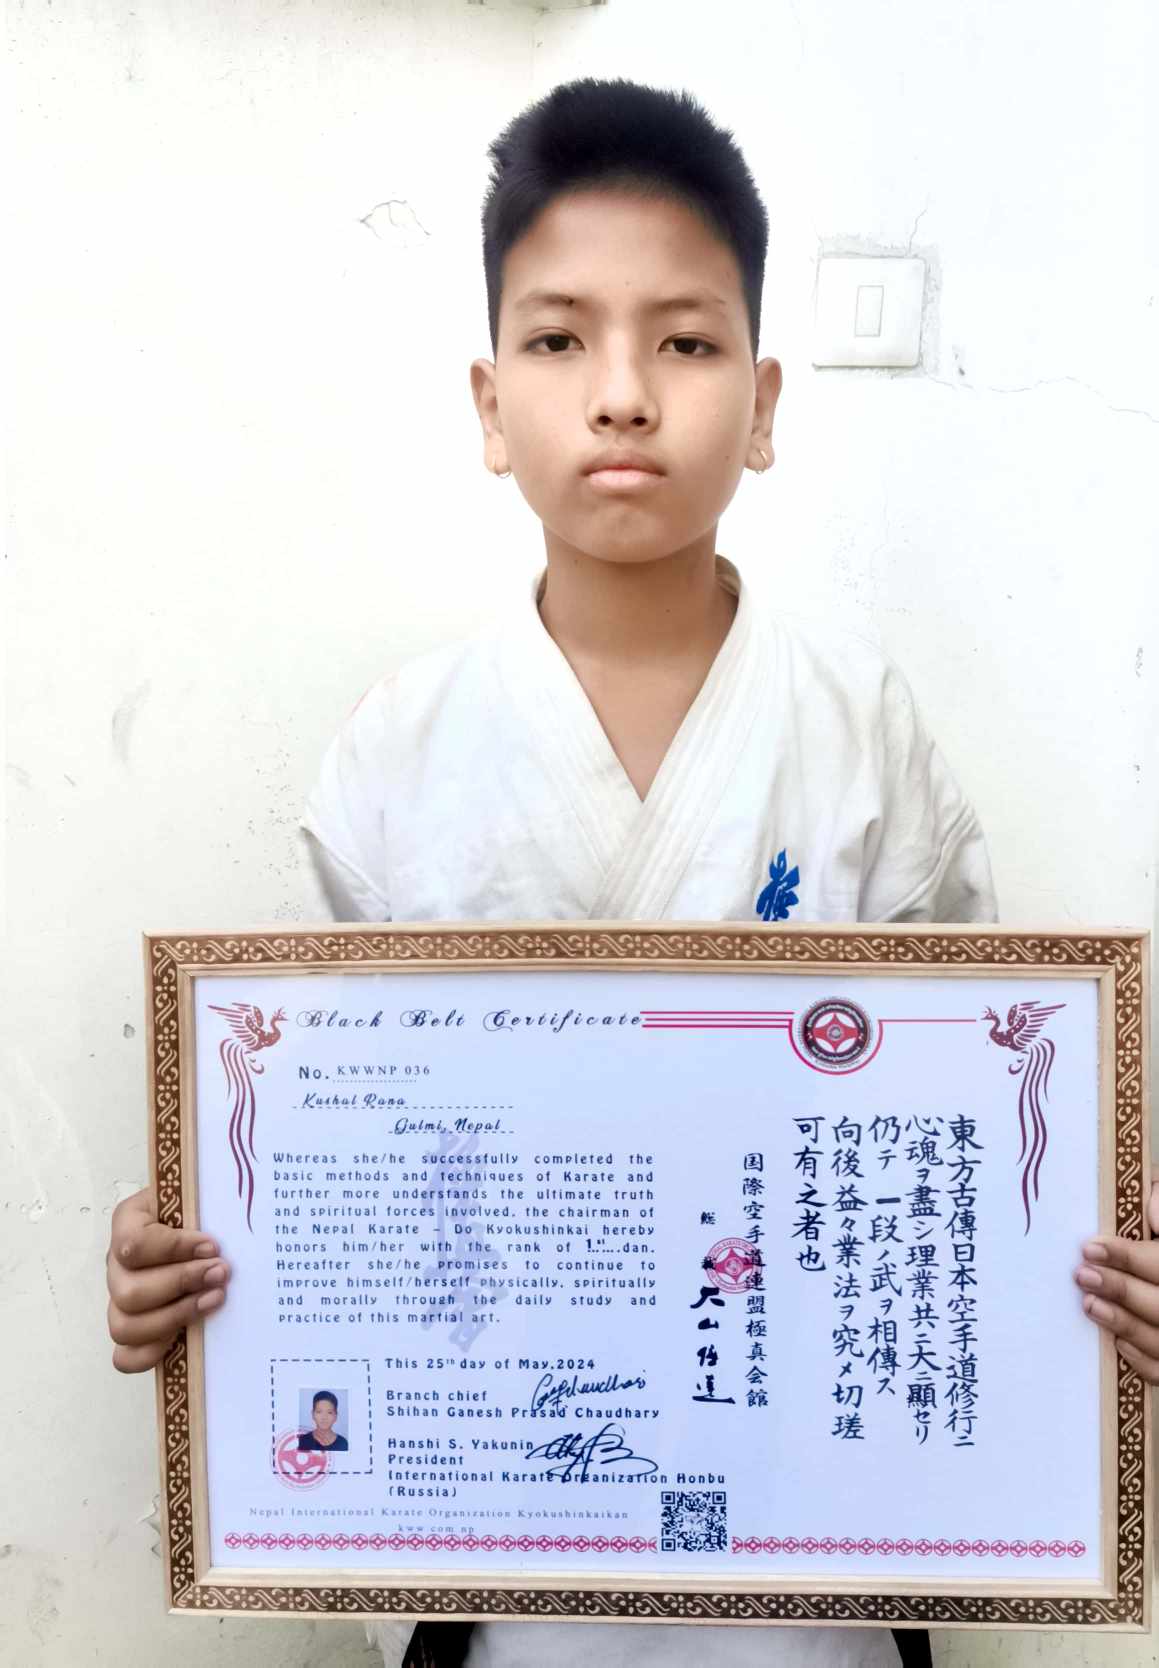 Black Belt Certificate
No. KWWNP 036
Kushal Rana
Gulmi, Nepal
Whereas she/he successfully completed the
basic methods and techniques of Karate and
further more understands the ultimate truth
and spiritual forces involved, the chairman of
the Nepal Karate – Do Kyokushinkai hereby
honors him/her with the rank of 1st dan.
Hereafter she/he promises to continue to
improve himself/herself physically, spiritually
and morally through the daily study and
practice of this martial art.
This 25th day of May,2024
Branch chief
Shihan Ganesh Prasad Chaudhary
Hanshi S. Yakunin
President
International Karate Organization Honbu
(Russia)
Nepal International Karate Organization Kyokushinkaikan
kww.com.np
東方古傳日本空手道修行ニ
心魂ヲ盡シ理業共ニ大ニ顯セリ
仍テ一段ノ武ヲ相傳ス
向後益々業法ヲ究メ切瑳
可有之者也
国際空手道連盟極真会館
総裁 大山倍達